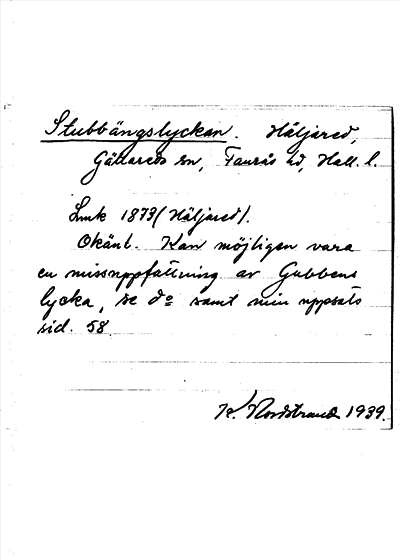 Stubbängslyckan. Häljared,
Gällareds sn, Faurås hd, Hall. l.
Lmk 1873 (Häljared).
Okänt. Kan möjligen vara
en missuppfattning av Gubbens
lycka, se do samt min uppsats
sid. 58
K. Nordstrand 1939.